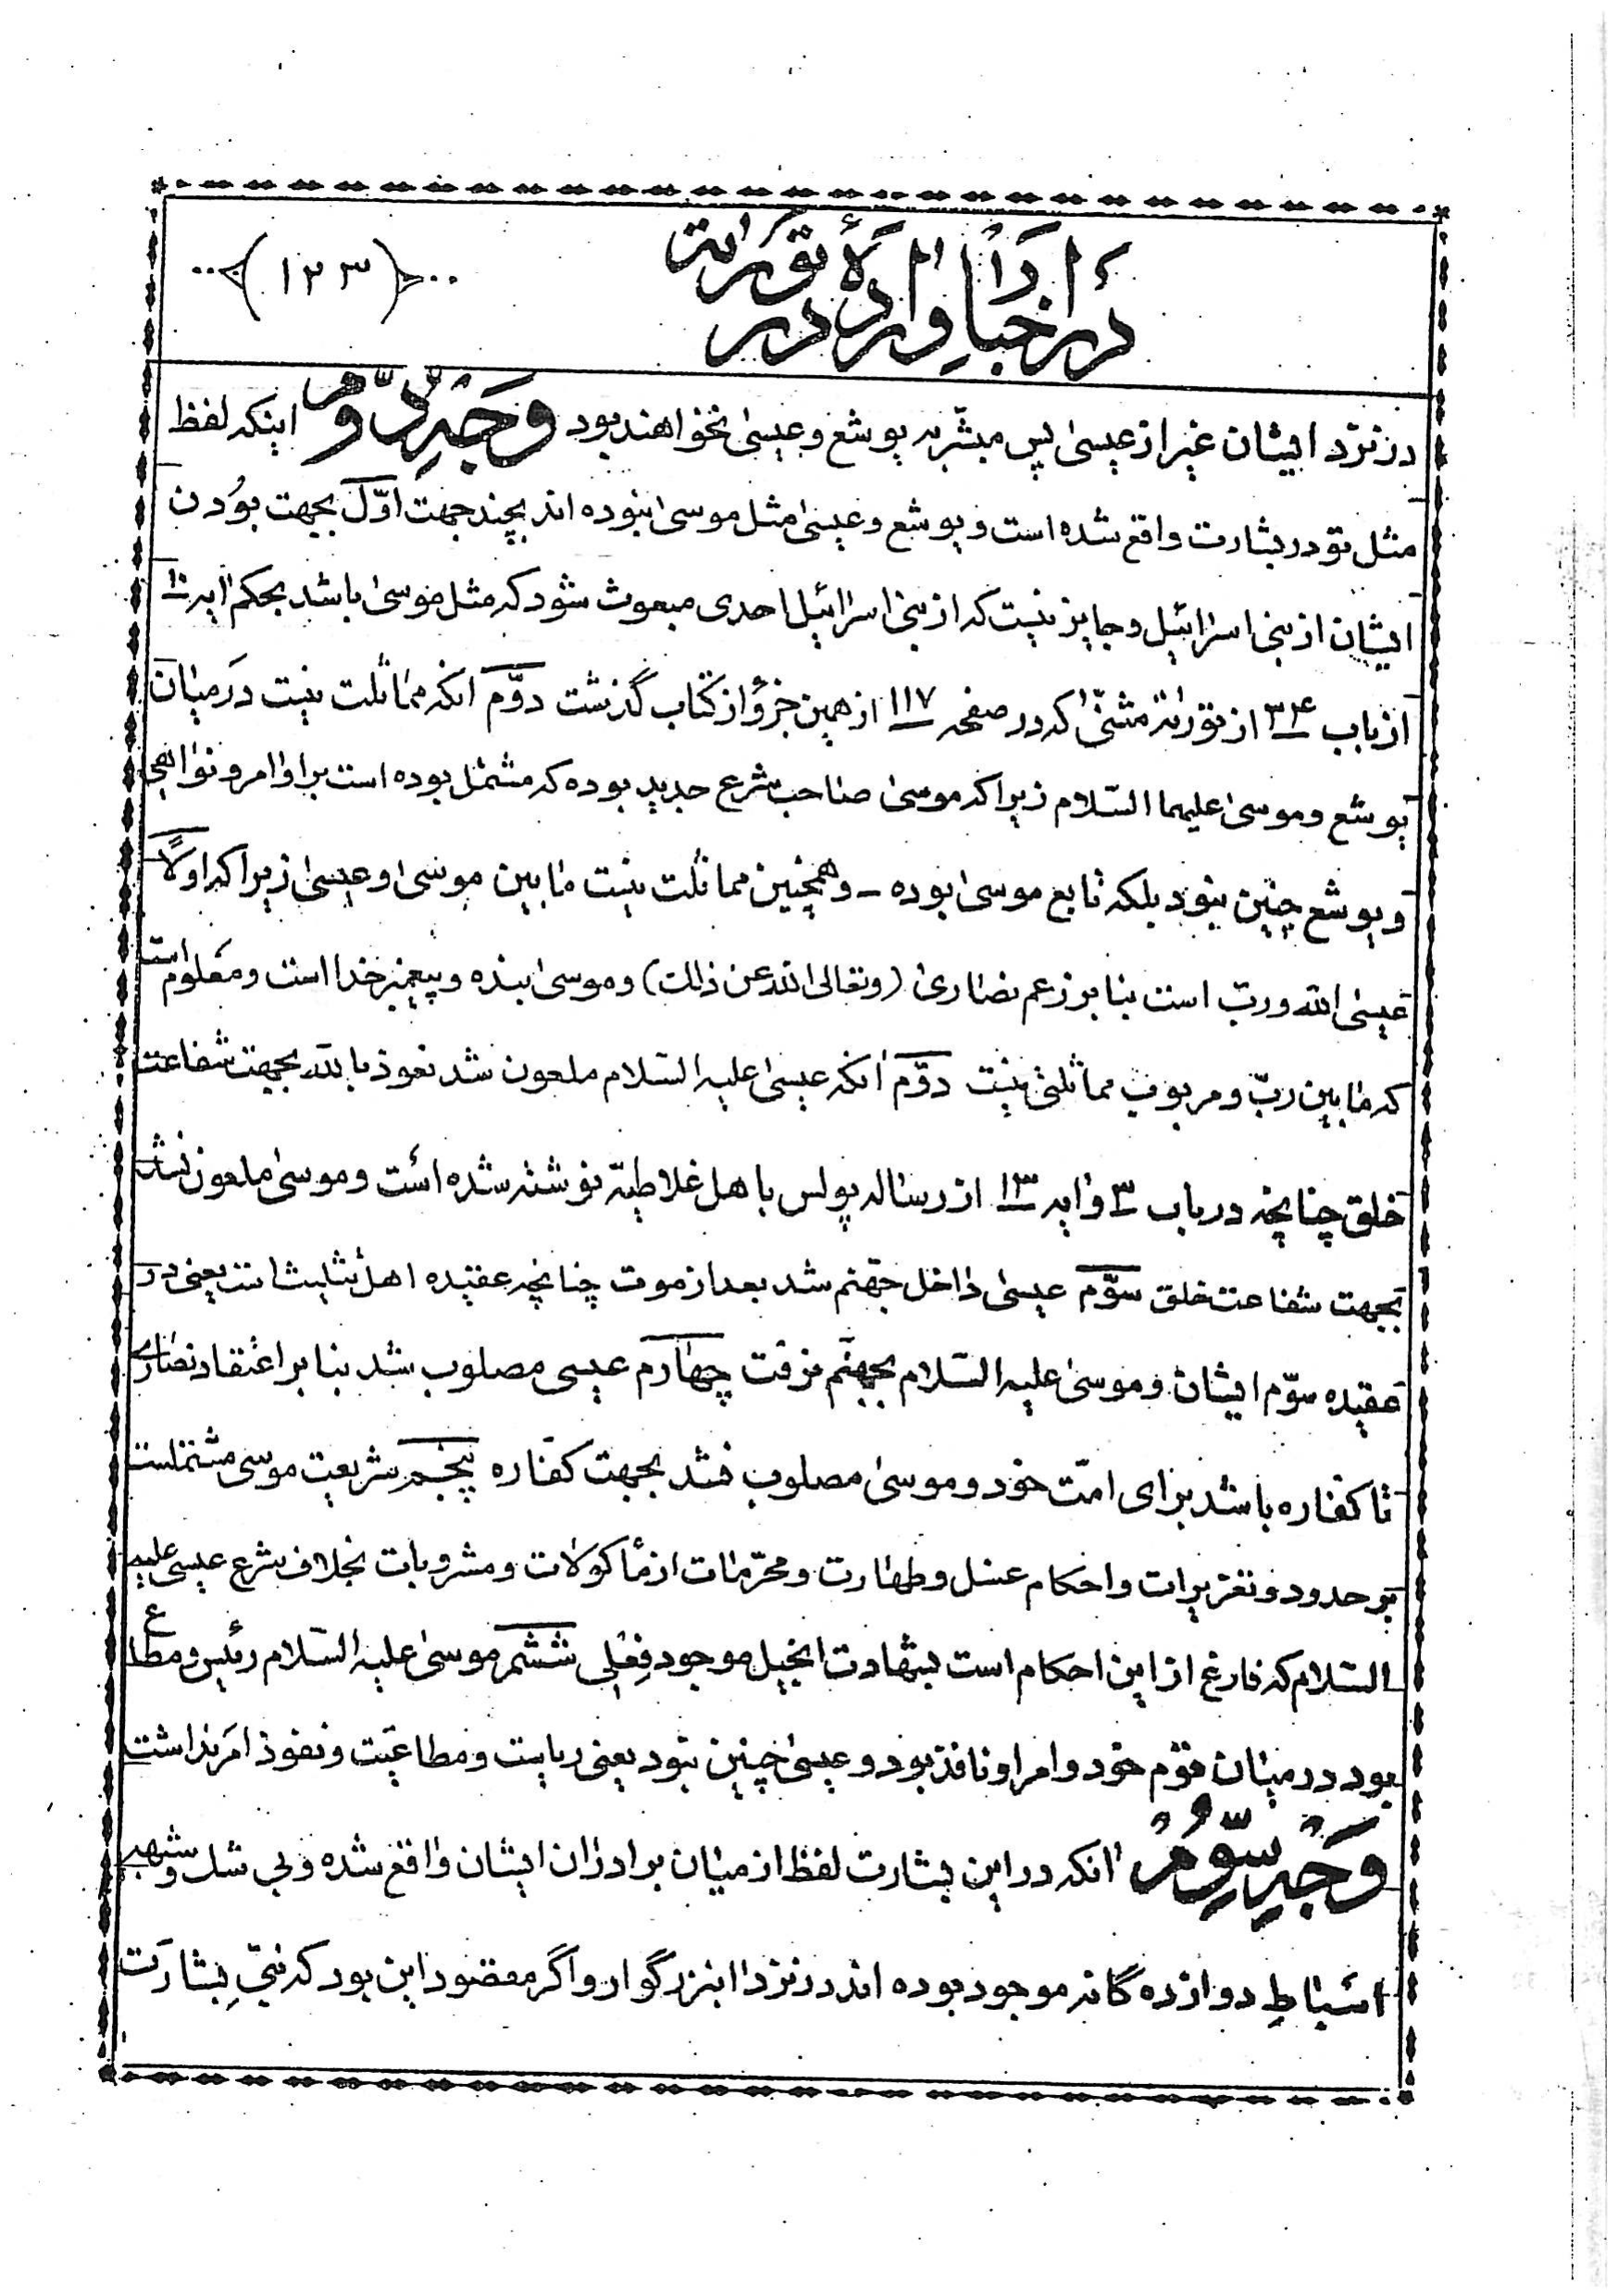 در اخبار وارده در تورات
(۱۲۳)
در نزد ایشان غیر از عیسیٰ پس مبشّر به یوشع و عیسیٰ نخواهند بود وجه دوّم اینکه لفظ
مثل تو در بشارت واقع شده است و یوشع و عیسیٰ مثل موسیٰ نبوده اند بچند جهت اوّل بجهت بودن
ایشان از بنی اسرائیل و جایز نیست که از بنی اسرائیل احدی مبعوث شود که مثل موسیٰ باشد بحکم ایه ۱۰
از باب ۳۴ از توراة مثنّیٰ که در صفحه ۱۱۷ از همین جزؤ از کتاب گذشت دوّم انکه مماثلت نیست در میان
یوشع و موسیٰ علیهما السّلام زیرا که موسیٰ صاحب شرع جدید بوده که مشتمل بوده است بر اوامر و نواهی
و یوشع چنین نبود بلکه تابع موسیٰ بوده ـ و همچنین مماثلت نیست مابین موسیٰ و عیسیٰ زیرا که اولاً
عیسیٰ الله و ربّ است بنابر زعم نصاریٰ (و تعالی الله عن ذالک) و موسیٰ بنده و پیغمبر خدا است و معلوم است
که مابین ربّ و مربوب مماثلتی نیست دوّم انکه عیسیٰ علیه السّلام ملعون شد نعوذ بالله بجهت شفاعت
خلق چنانچه در باب ۳ و ایه ۱۳ از رساله پولس باهل غلاطیّه نوشته شده است و موسیٰ ملعون نشد
بجهت شفاعت خلق سوّم عیسیٰ داخل جهنم شد بعد از موت چنانچه عقیده اهل تثلیث است یعنی در
عقیده سوّم ایشان و موسیٰ علیه السّلام بجهنّم نرفت چهارم عیسی مصلوب شد بنابر اعتقاد نصاریٰ
تا کفاره باشد برای امّت خود و موسیٰ مصلوب نشد بجهت کفاره پنجم شریعت موسی مشتملست
بر حدود و تعزیرات و احکام غسل و طهارت و محرّمات از مأکولات و مشروبات بخلاف شرع عیسی علیه
السّلام که فارغ از این احکام است بشهادت انجیل موجود فعلی ششم موسیٰ علیه السّلام رئیس و مطاع
بود در میان قوم خود و امر او نافذ بود و عیسیٰ چنین نبود یعنی ریاست و مطاعیّت و نفوذ امر نداشت
وجه سوّم انکه در این بشارت لفظ از میان برادران ایشان واقع شده و بی شک و شبهه
اسباط دوازده گانه موجود بوده اند در نزد انبزرگوار و اگر مقصود این بود که نبیِّ بشارت